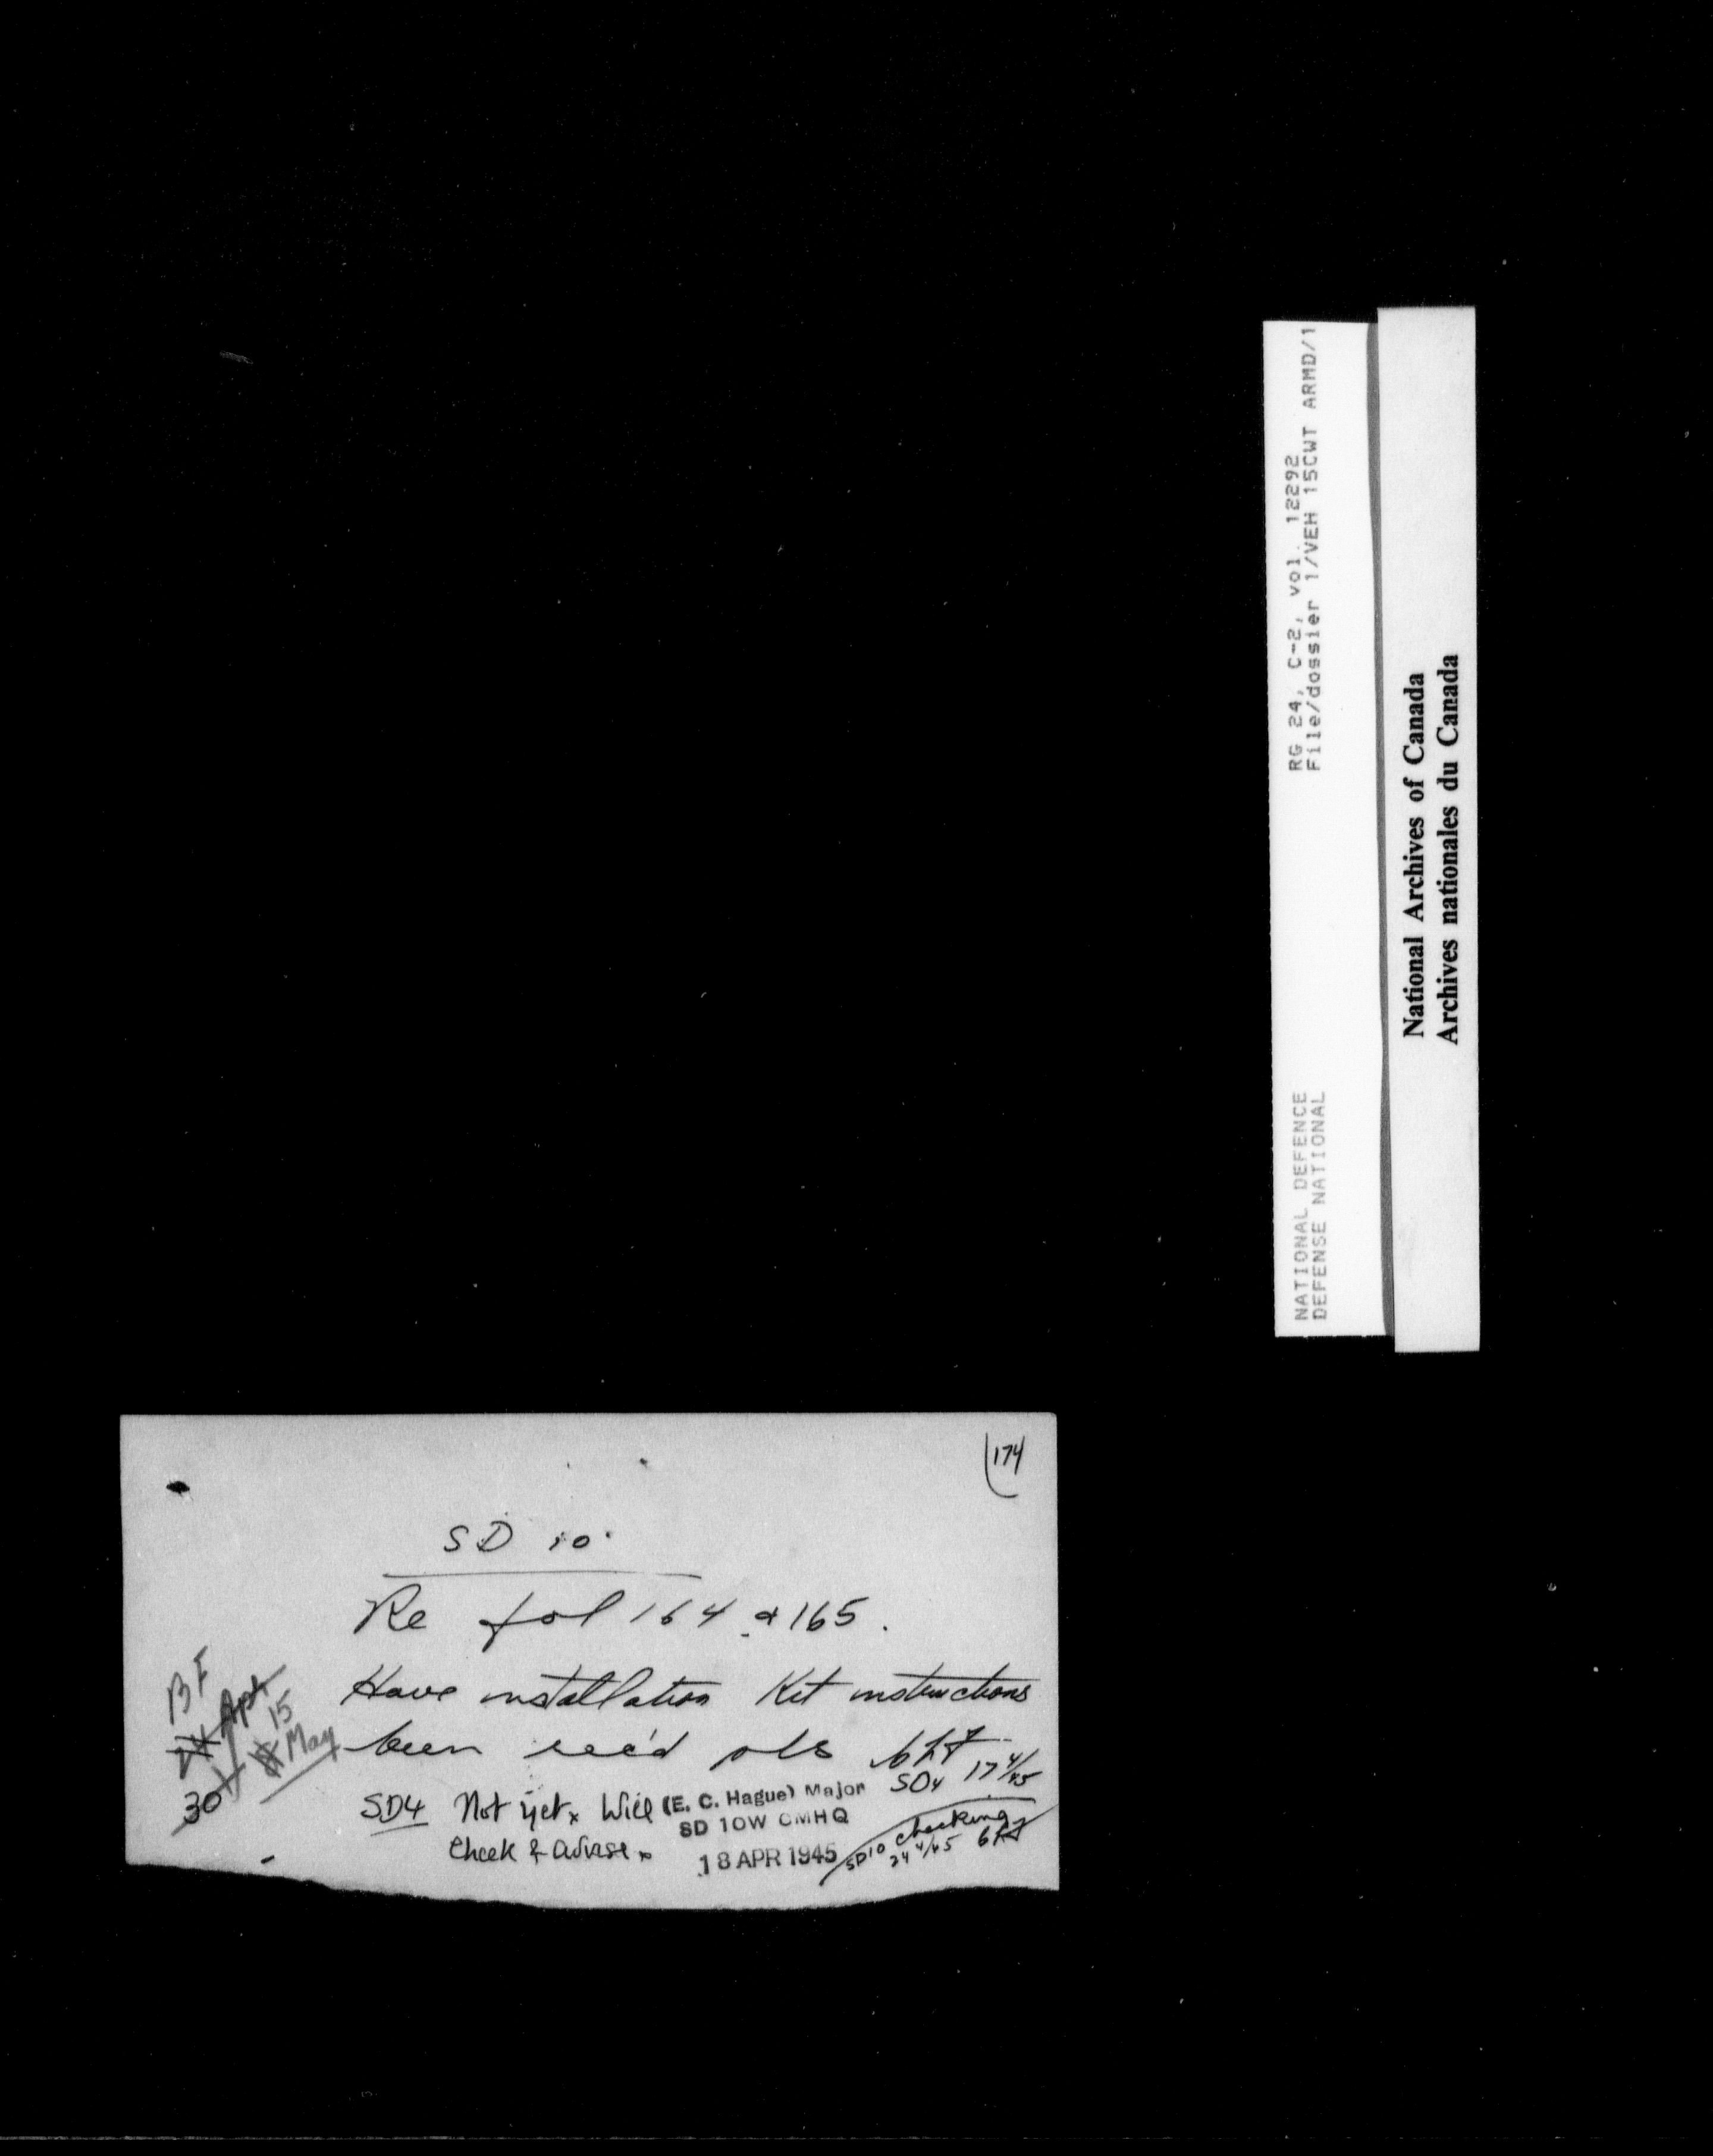 RG 24, C-2, vol. 12292
File/dossier 1/VEH 15CWT ARMD/1
NATIONAL DEFENCE
DEFENSE NATIONAL
National Archives of Canada
Archives nationales du Canada
174
SD 10
Re fol 164 & 165.
Have installation Kit instructions
been rec'd pls
SD4 17 4/45
BF
Apr
30
15
May
SD4 Not yet x Will
Check & advise x
(E. C. Hague) Major
SD 10W CMHQ
18 APR 1945
SD10 checking
24 4/45